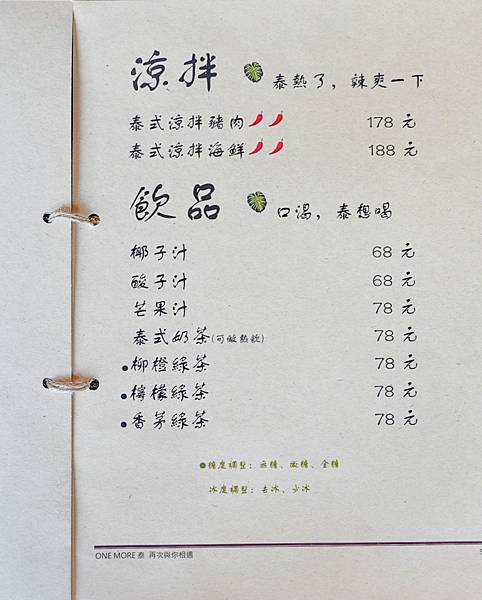 涼拌 泰熱了，辣爽一下
泰式涼拌豬肉 178 元
泰式涼拌海鮮 188 元
飲品 口渴，泰想喝
椰子汁 68 元
酸子汁 68 元
芒果汁 78 元
泰式奶茶(可做熱飲) 78 元
●柳橙綠茶 78 元
●檸檬綠茶 78 元
●香茅綠茶 78 元
●糖度調整：無糖、微糖、全糖
冰度調整：去冰、少冰
ONE MORE 泰 再次與你相遇